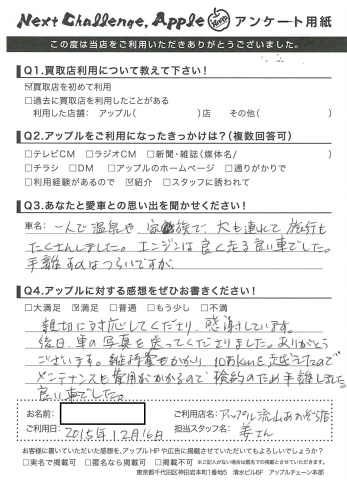 Next Challenge, Apple アンケート用紙
この度は当店をご利用いただきありがとうございました。
Q1.買取店利用について教えて下さい!
☑買取店を初めて利用
□過去に買取店を利用したことがある
利用した店舗: アップル( )店 その他( )
Q2.アップルをご利用になったきっかけは?(複数回答可)
□テレビCM □ラジオCM □新聞・雑誌(媒体名/ )
□チラシ □DM □アップルのホームページ □通りがかりで
□利用経験があるので ☑紹介 □スタッフに誘われて
Q3.あなたと愛車との思い出を聞かせください!
車名: 一人で温泉や、家族で、犬も連れて旅行も
たくさんしました。エンジンは良く走る良い車でした。
手離すのはつらいですが、
Q4.アップルに対する感想をぜひお書きください!
□大満足 ☑満足 □普通 □もう少し □不満
親切に対応してくださり、感謝しています。
後日、車の写真を送ってくださりました。ありがとう
ございます。維持費もかかり、10万kmを越えたので
メンテナンスも費用がかかるので倹約のため手離しました。
良い車でした。
お名前: ご利用店名:アップル流山あおぞら店
ご利用日: 2015年12月16日 担当スタッフ名: 姜さん
お客様に書いていただいた感想を、アップルHPや広告に掲載させていただいてもよろしいでしょうか?
□実名で掲載可 □匿名なら掲載可 □掲載不可 ※ご記入がない場合は匿名での掲載とさせていただきます。
東京都千代田区神田岩本町1番地5 清水ビル6F アップルチェーン本部